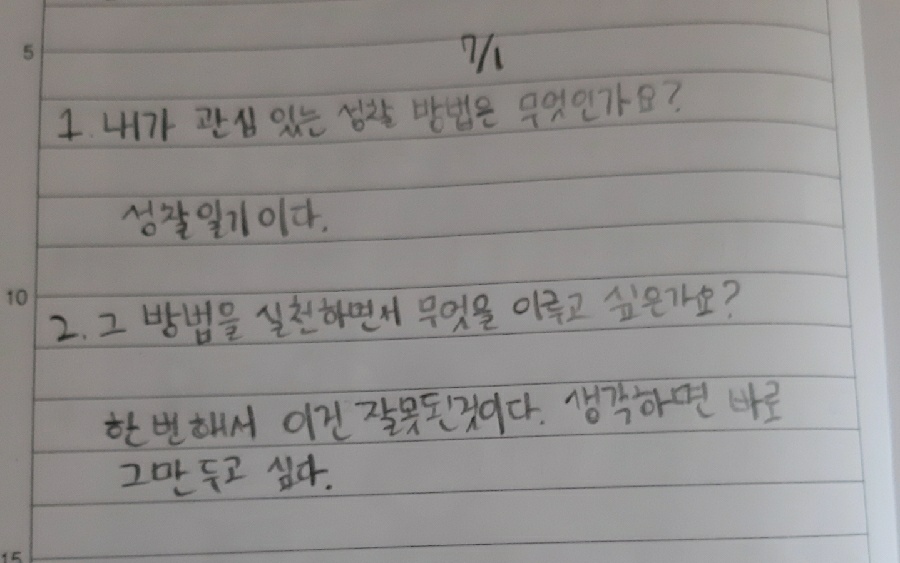 5
7/1
1. 내가 관심 있는 성찰 방법은 무엇인가요?
성찰일기이다.
10
2. 그 방법을 실천하면서 무엇을 이루고 싶은가요?
한번해서 이건 잘못된것이다. 생각하면 바로
그만두고 싶다.
15